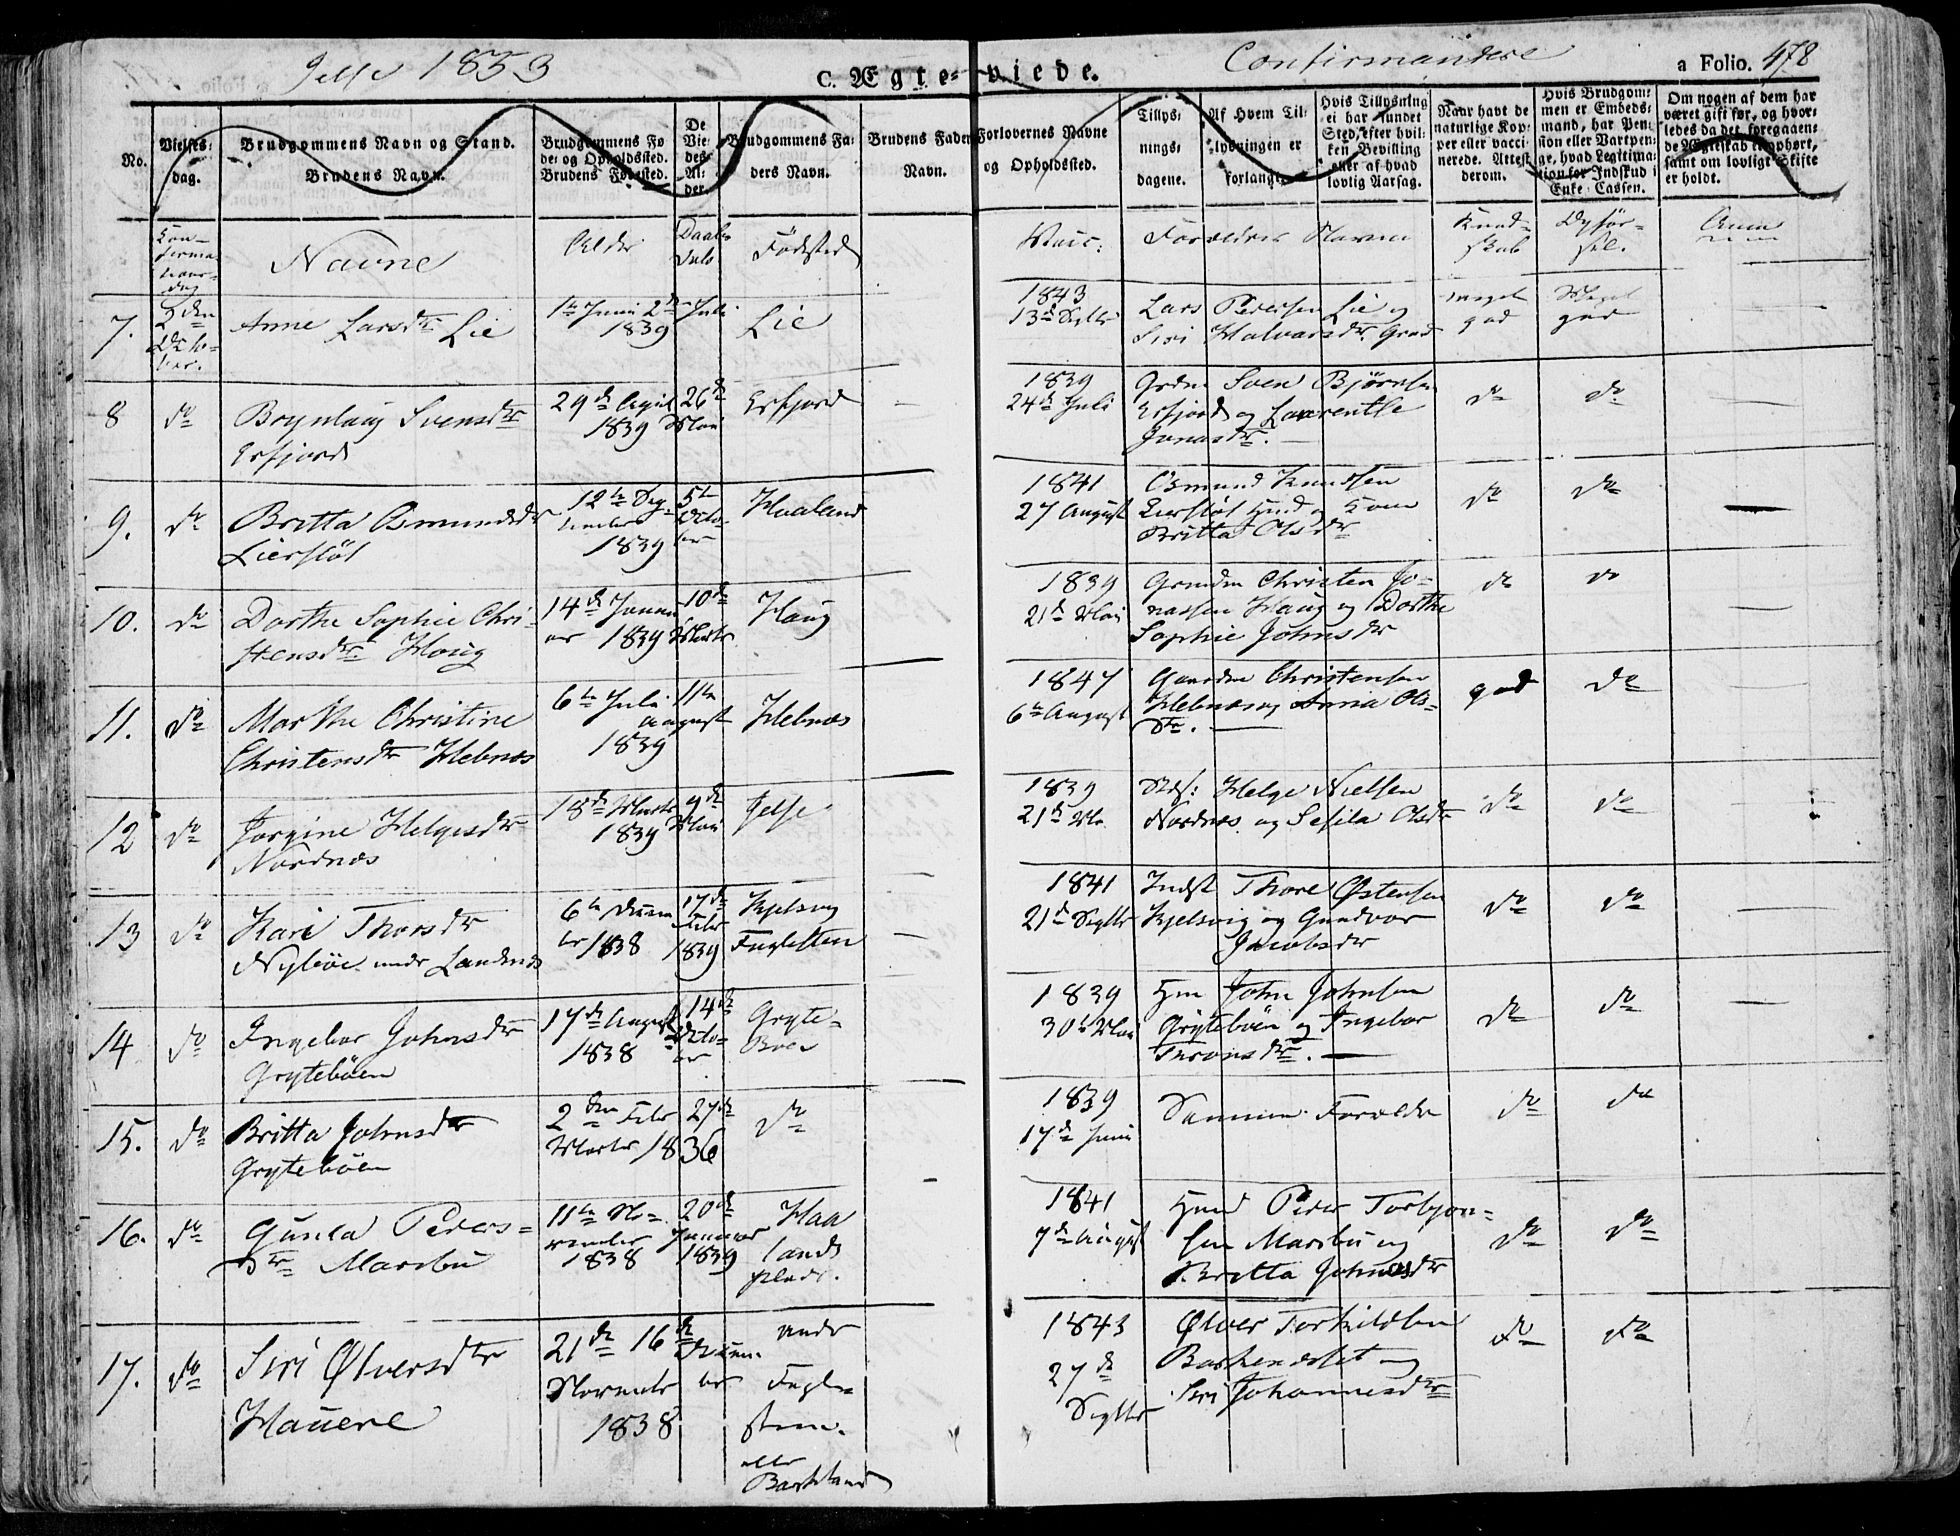 Jelse 1853
C. Ægte-viede.
Confirmandere
a Folio. 478
No.
Vielses-dag.
Brudgommens Navn og Stand.
Brudens Navn.
Brudgommens Fø
de- og Opholdssted.
Brudens Fødested.
De
Vie-
des
Al-
der
Brudgommens Fa-
ders Navn.
Brudens Faders
Navn.
Forlovernes Navne
og Opholdssted.
Tillys-
nings-
dagene.
Af Hvem Til-
lysningen er
forlangt.
Hvis Tillysning
ei har fundet
Sted, efter hvil-
ken Bevilling
eller af hvad
lovlig Aarsag.
Naar havt de
naturlige Kop-
per eller vacci-
nerede. Attest
derom.
Hvis Brudgom-
men er Embeds-
mand, har Pen-
sion eller Vartpen-
ge, hvad Legitima-
tion for Indskud i
Enke-Cassen.
Om nogen af dem har
været gift før, og hvor-
ledes da det foregaaen-
de Ægteskab er ophørt,
samt om lovligt Skifte
er holdt.
Kon-
firma
tions-
dag
Navne
Alder
Daabs
Fødested
Vacc:
Forældres Navne
Kund-
skab
Opfør-
sel.
Anm
7. 2den
Octo-
ber.
Anne Larsdtr Lie
1te Juni 2den Juli
1839
Lie
1843
13de Septbr
Lars Pedersen Lie og
Siri Halvarsdtr.
meget
god
Meget
god
8 do
Brynlaug Svensdtr
Erfjord
29de April 26de
1839 Mai
Erfjord
1839
24de Juli
Sven Bjørnsen
Erfjord og Laurentle
Jonasdtr.
do
do
9. do
Britta Osmundsdtr
Lierstøl
12te Sep- 5te
tember Octo-
1839 ber
Haaland
1841
27 August
Osmund Knudsen
Lierstøl Huusd og Kone
Britta Olsdtr
do
do
10. do
Dorthe Sophie Chri-
stensdtr. Houg
14de Janu- 10de
ar 1839 Marts
Houg
1839
21de Mai
Christen Jo-
nassen Haug og Dorthe
Sophie Johnsdtr
do
do
11. do
Marthe Christine
Christensdtr Hebnæs
6te Juli 11te
August
1839
Hebnæs
1847
6te August
Christensen
Hebnæs og Anna Ols-
dtr.
god
do
12 do
Jorgine Helgesdtr
Nordnæs
18de Marts 9de
1839 Mai
Jelse
1839
21de Mai
Helge Nielsen
Nordnæs og Sesila Olsdtr
do
do
13 do
Kari Thorsdtr
Nybøe under Landnæs
6te Decem 17de
ber 1838 Febr
1839
Kjelsvig
1841
21de Septbr
Indst Thore Østensen
Kjelsvig og Gundvor
Jacobsdtr
do
do
14 do
Ingebor Johnsdtr
Grytebøen
17de August 14de
1838 Octo-
ber
Gryte-
Bøen
1839
30te Mai
John Johnsen
Grytebøen og Ingebor
Thronsdtr.
do
do
15. do
Britta Johnsdtr
Grytebøen
2den Febr 27de
Marts 1836
do
1839
17de Juni
Samme Forældre
do
do
16. do
Gunla Peders-
dtr Marsbu
11te No- 20de
vember Januar
1838 1839
Haa
lands
plads.
1841
7de August
Huusd Peder Torbjørn-
sen Marsbu og
Britta Johnsdtr
do
do
17. do
Siri Ølversdtr
Hauene
21de 16de
Novembr Decem-
ber
1838
under
Fugle-
steen
eller
Barkeland
1843
27de
Septbr
Ølver Torkildsen
og
Siri Johannesdtr
do
do